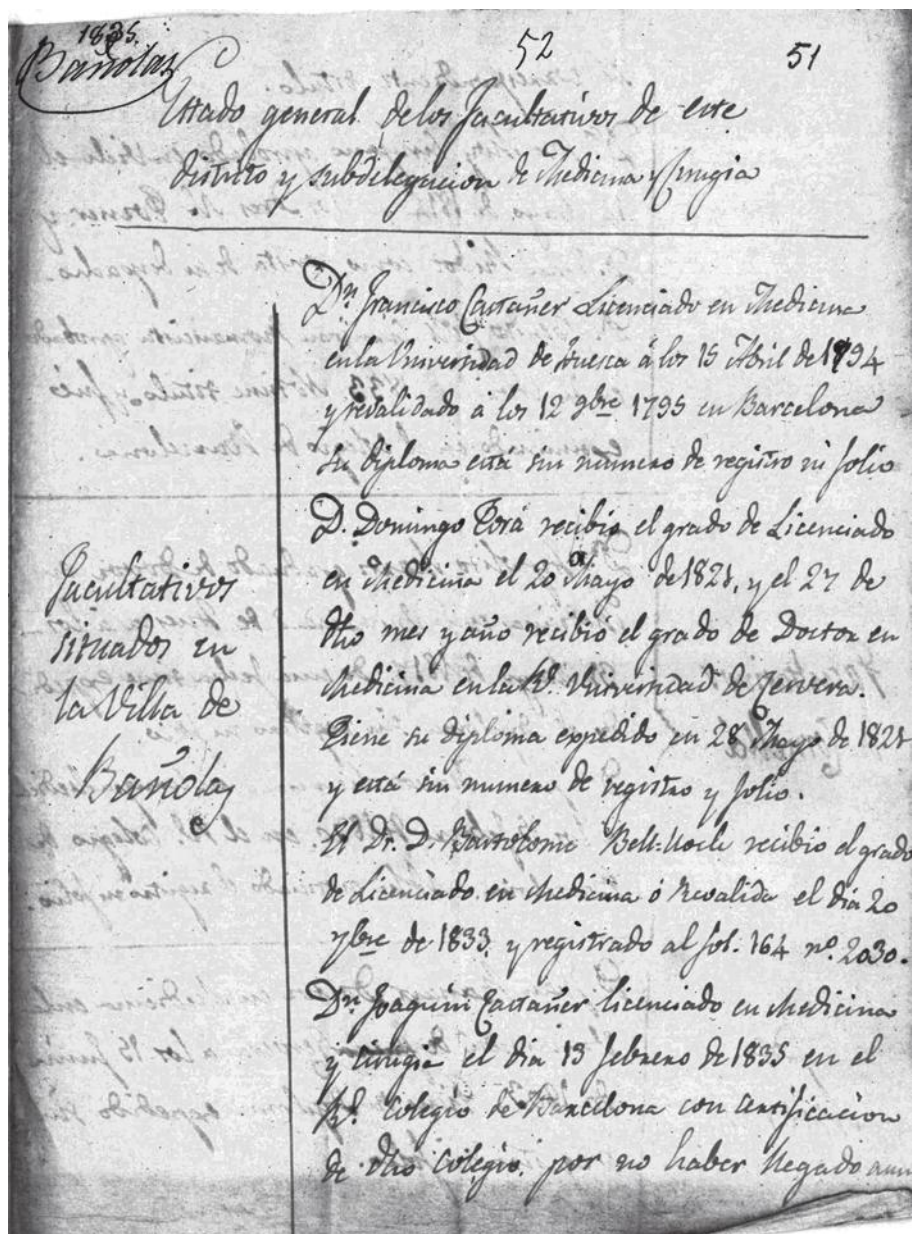 1835.
Bañolas
52
51
Estado general de los facultativos de este
distrito y subdelegacion de Medicina y Cirugia
Facultativos
situados en
la Villa de
Bañolas
Dn. Francisco Castañer Licenciado en Medicina
en la Universidad de Huesca á los 15 Abril de 1794
y revalidado á los 12 9bre 1795 en Barcelona
su diploma está sin numero de registro ni folio
D. Domingo recibio el grado de Licenciado
en Medicina el 20 Mayo de 1821, y el 27 de
dho mes y año recibió el grado de Doctor en
Medicina en la Rl. Universidad de Cervera.
Tiene su diploma expedido en 28 Mayo de 1821
y está sin numero de registro y folio.
El Dr. D. Bartolome Bell-lloch recibio el grado
de Licenciado en Medicina ó Revalida el dia 20
7bre de 1833, y registrado al fol. 164 nº. 2030.
Dn. Joaquin Castañer licenciado en Medicina
y cirugia el dia 13 febrero de 1835 en el
Rl. Colegio de Barcelona con certificacion
de dho colegio, por no haber llegado aun